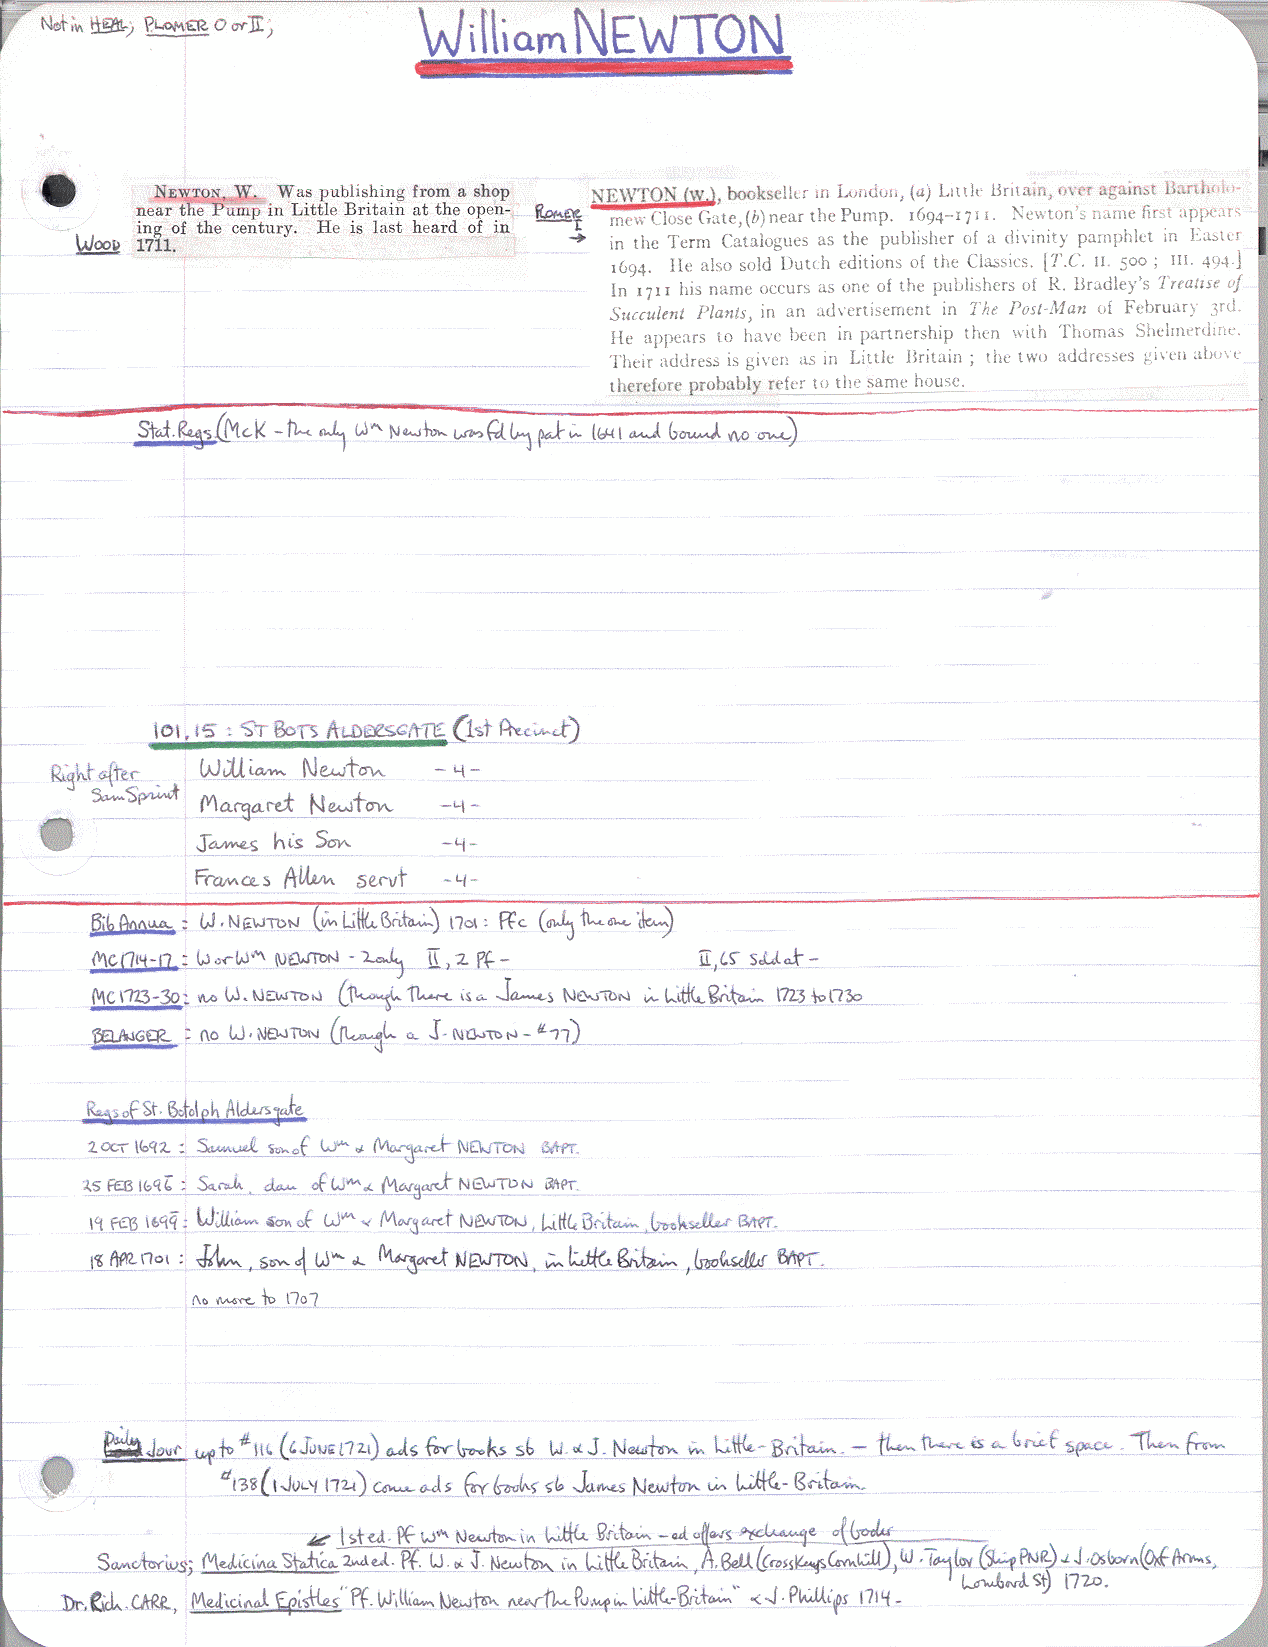 Not in HEAL; PLOMER O or II;
William NEWTON
NEWTON, W. Was publishing from a shop
near the Pump in Little Britain at the open-
ing of the century. He is last heard of in
1711.
WOOD
PLOMER
I
→
NEWTON (W.), bookseller in London, (a) Little Britain, over against Bartholo-
mew Close Gate, (b) near the Pump. 1694–1711. Newton's name first appears
in the Term Catalogues as the publisher of a divinity pamphlet in Easter
1694. He also sold Dutch editions of the Classics. [T.C. II. 500 ; III. 494.]
In 1711 his name occurs as one of the publishers of R. Bradley's Treatise of
Succulent Plants, in an advertisement in The Post-Man of February 3rd.
He appears to have been in partnership then with Thomas Shelmerdine.
Their address is given as in Little Britain ; the two addresses given above
therefore probably refer to the same house.
Stat. Regs (McK - the only Wm Newton was fd by pat in 1641 and bound no one)
101.15 : ST BOTS ALDERSGATE (1st Precinct)
Right after
Sam Sprint
William Newton - 4 -
Margaret Newton - 4 -
James his Son - 4 -
Frances Allen servt - 4 -
Bib Annua : W. NEWTON (in Little Britain) 1701: Pfc (only the one item)
MC1714-17 : W or Wm NEWTON - 2 only II, 2 Pf - II, 65 Sold at -
MC1723-30 : no W. NEWTON (though there is a James NEWTON in Little Britain 1723 to 1730
BELANGER : no W. NEWTON (though a J. NEWTON - #77)
Regs of St. Botolph Aldersgate
2 OCT 1692 : Samuel son of Wm & Margaret NEWTON BAPT.
25 FEB : Sarah, dau of Wm & Margaret NEWTON BAPT.
19 FEB : William son of Wm & Margaret NEWTON, Little Britain, bookseller BAPT.
18 APR 1701 : John, son of Wm & Margaret NEWTON, in Little Britain, bookseller BAPT.
no more to 1707
Daily Jour up to #116 (6 JUNE 1721) ads for books sb W. & J. Newton in Little-Britain. - then there is a brief space. Then from
#138 (1 JULY 1721) come ads for books sb James Newton in Little-Britain.
1st ed. Pf Wm Newton in Little Britain - ad offers exchange of books
Sanctorius; Medicina Statica 2nd ed. Pf. W. & J. Newton in Little Britain, A. Bell (Cross Keys Cornhill), W. Taylor (Ship PNR) & J. Osborn (Oxf Arms,
Lombard St) 1720.
Dr. Rich. CARR, Medicinal Epistles "Pf. William Newton near the Pump in Little-Britain" & J. Phillips 1714 -